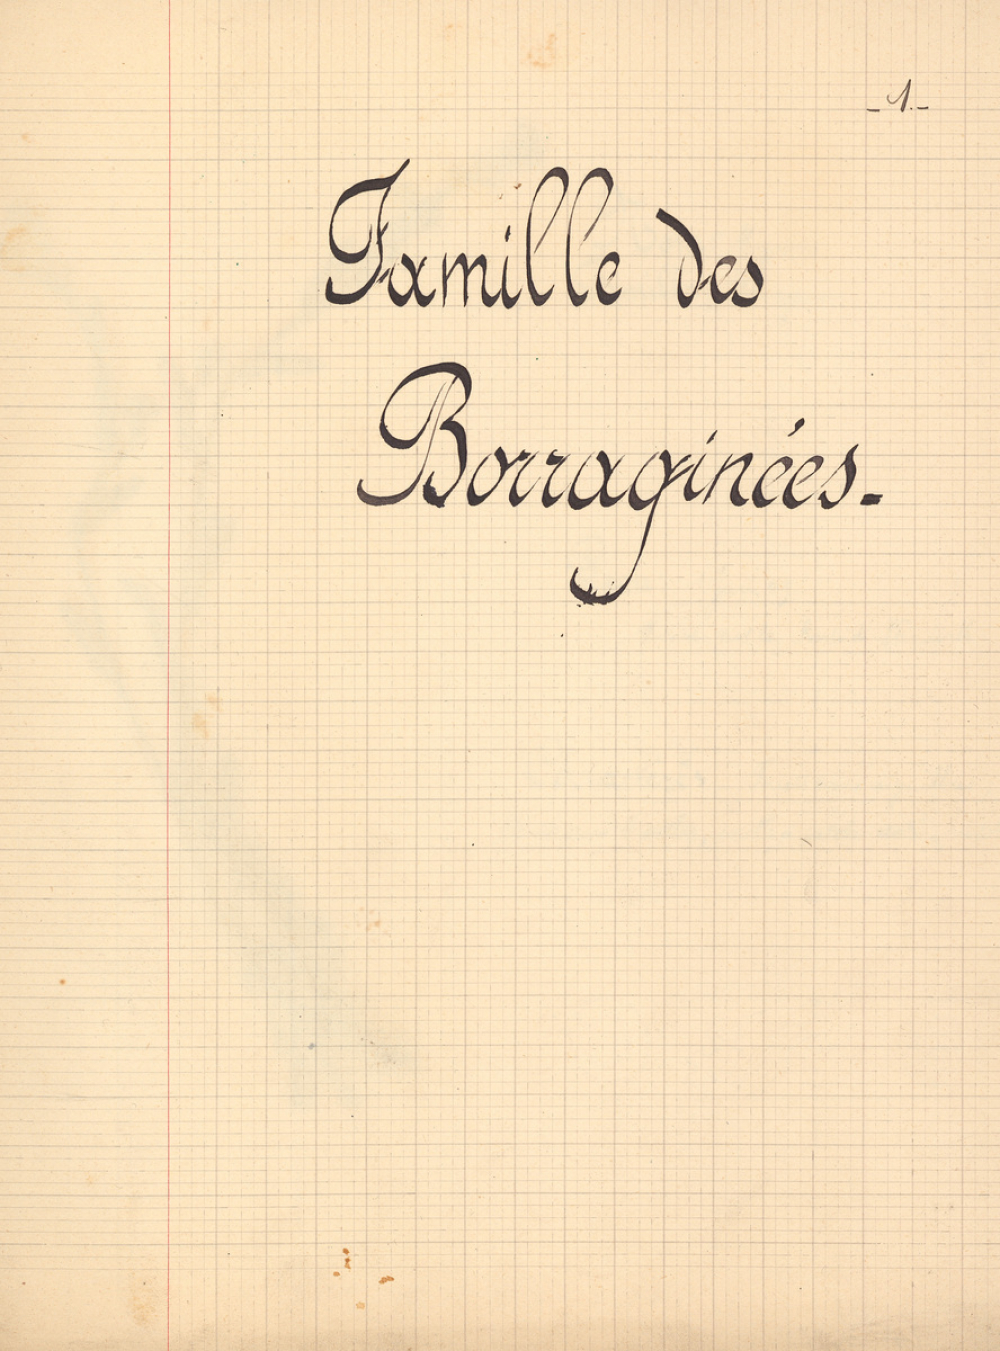 -1.-
Famille des
Borraginées.